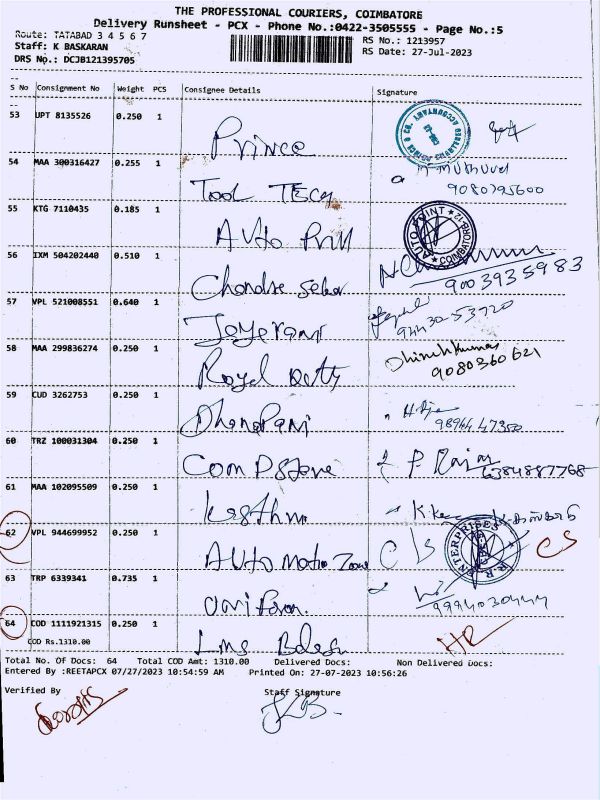 THE PROFESSIONAL COURIERS, COIMBATORE
Delivery Runsheet - PCX - Phone No.:0422-3505555 - Page No.:5
Route: TATABAD 3 4 5 6 7
RS No.: 1213957
Staff: K BASKARAN
RS Date: 27-Jul-2023
DRS No.: DCJB121395705
S No Consignment No Weight PCS Consignee Details Signature
53 UPT 8135526 0.250 1 Prince
54 MAA 300316427 0.255 1 Tool Tech
9080795600
55 KTG 7110435 0.185 1 Auto Print
AUTO PRINT COIMBATORE-12
56 IXM 504202440 0.510 1 Chandra Sekar
9003935983
57 VPL 521008551 0.640 1 Jeyerani
94430-53720
58 MAA 299836274 0.250 1 Royal
Dhineshkumar
9080360621
59 CUD 3262753 0.250 1 DhanaPani
9896447300
60 TRZ 100031304 0.250 1 Com PStone
6384887768
61 MAA 102095509 0.250 1
62 VPL 944699952 0.250 1 Automotio Zone
ENTERPRISES
CS
63 TRP 6339341 0.735 1 Uniform
9994030444
64 COD 1111921315 0.250 1 Lms Balesh
COD Rs.1310.00
Total No. Of Docs: 64 Total COD Amt: 1310.00 Delivered Docs: Non Delivered Docs:
Entered By :REETAPCX 07/27/2023 10:54:59 AM Printed On: 27-07-2023 10:56:26
Verified By Staff Signature